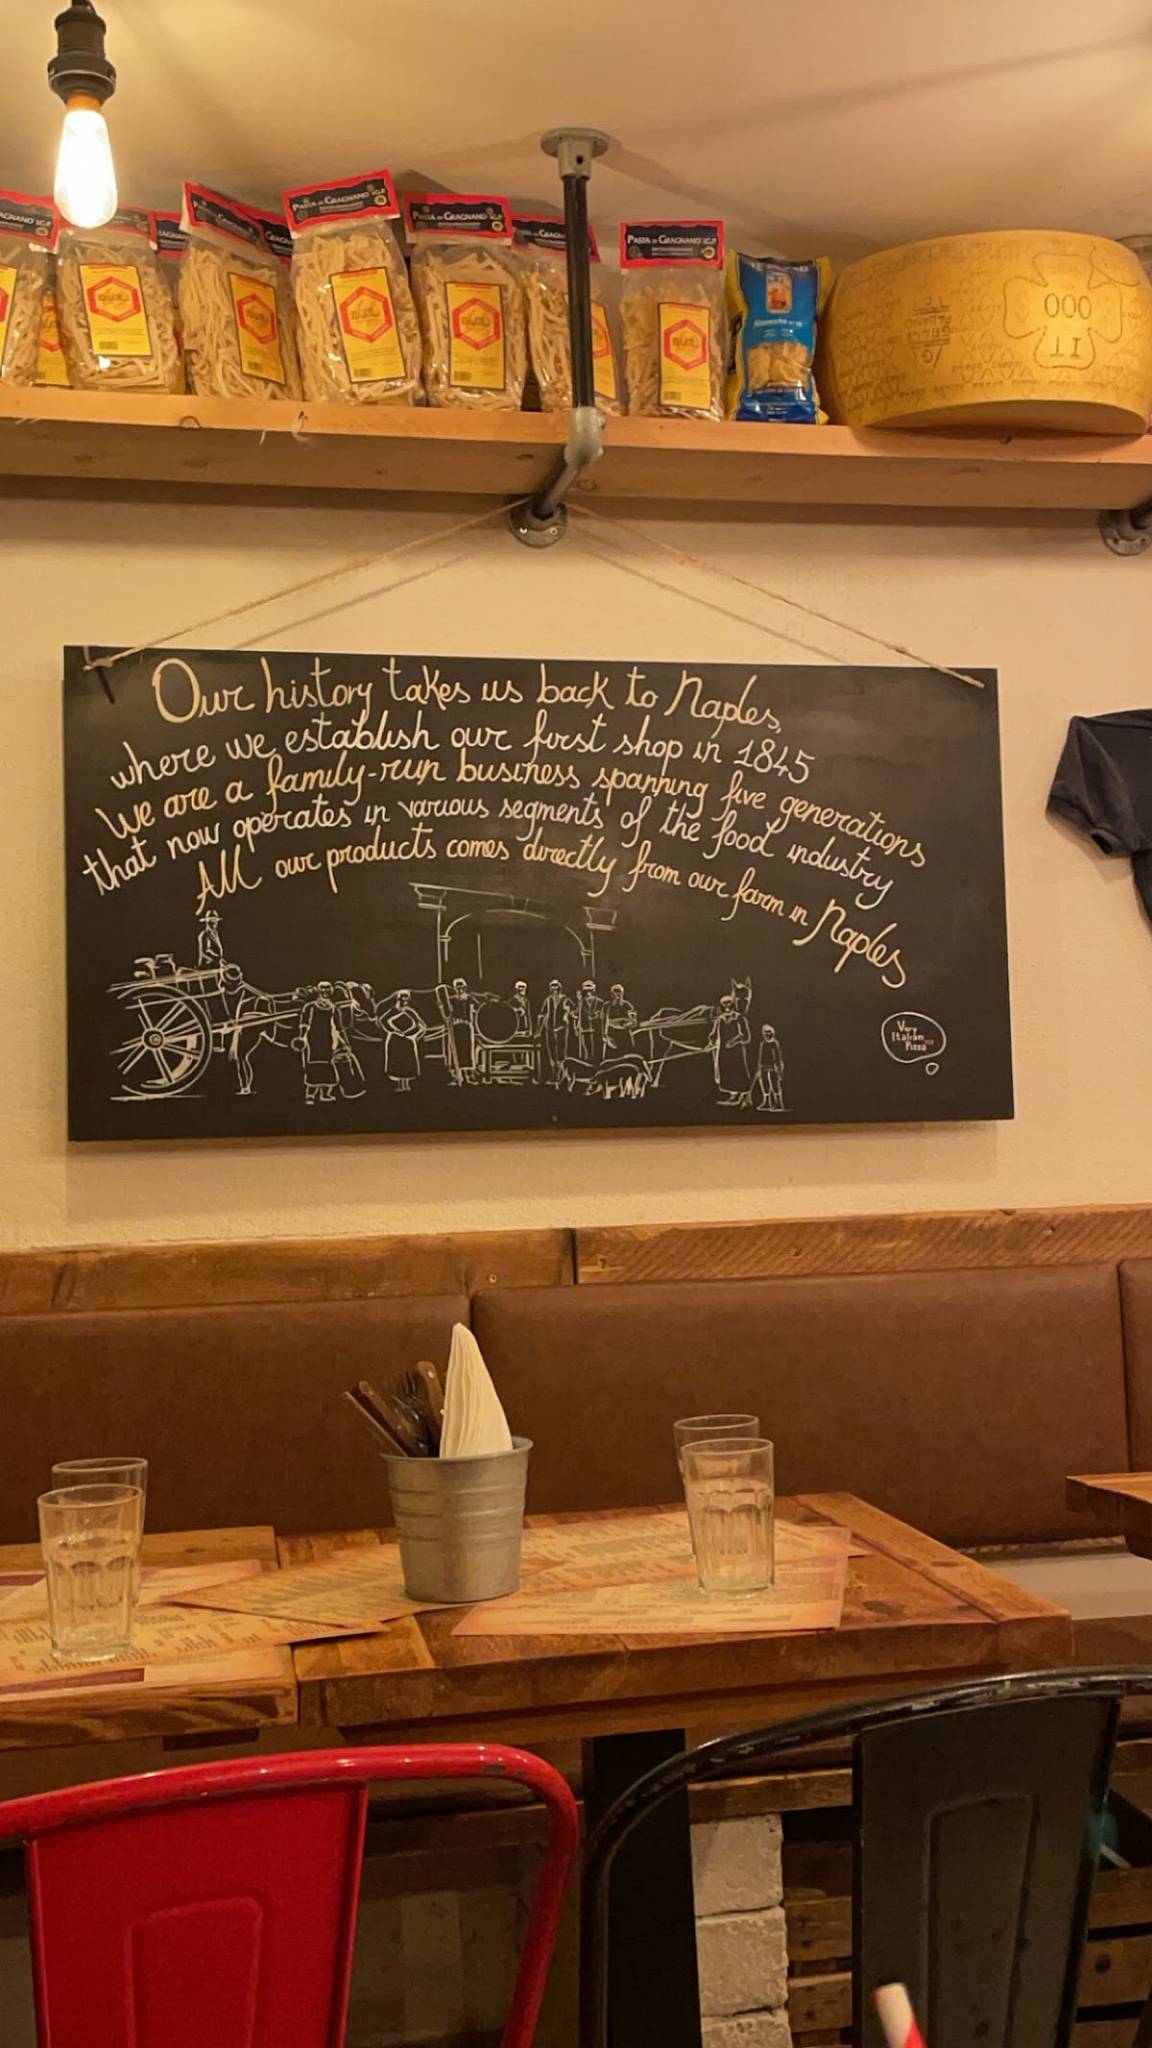 PASTA DI GRAGNANO I.G.P.
PASTA DI GRAGNANO I.G.P.
PASTA DI GRAGNANO I.G.P.
000
IT
Our history takes us back to Naples,
where we establish our first shop in 1845
We are a family-run business spanning five generations
that now operates in various segments of the food industry
All our products comes directly from our farm in Naples
Very
Italian
Pizza